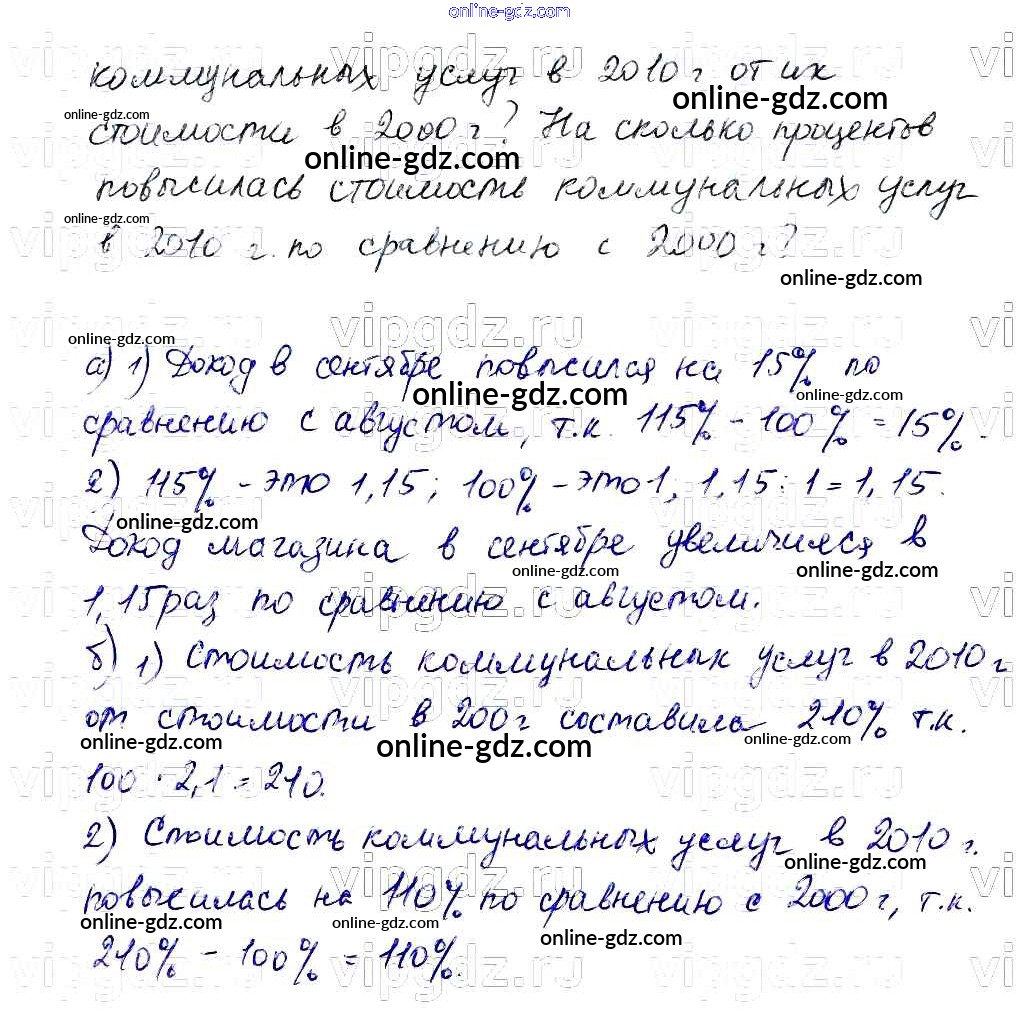 online-gdz.com
vipgdz.ru vipgdz.ru vipgdz.ru vi
коммунальных услуг в 2010 г от их
online-gdz.com
online-gdz.com
стоимости в 2000 г? На сколько процентов
online-gdz.com
повысилась стоимость коммунальных услуг
online-gdz.com
в 2010 г. по сравнению с 2000 г?
online-gdz.com
vipgdz.ru vipgdz.ru vipgdz.ru vi
online-gdz.com
а) 1) Доход в сентябре повысился на 15% по
online-gdz.com
online-gdz.com
сравнению с августом, т.к. 115% - 100% = 15%.
2) 115% - это 1,15; 100% - это 1, 1,15 : 1 = 1,15.
online-gdz.com
Доход магазина в сентябре увеличился в
online-gdz.com
online-gdz.com
1,15 раз по сравнению с августом.
б) 1) Стоимость коммунальных услуг в 2010 г
от стоимости в 200 г составила 210% т.к.
online-gdz.com
online-gdz.com
online-gdz.com
100 · 2,1 = 210.
2) Стоимость коммунальных услуг в 2010 г.
online-gdz.com
повысилась на 110% по сравнению с 2000 г, т.к.
online-gdz.com
online-gdz.com
online-gdz.com
210% - 100% = 110%.